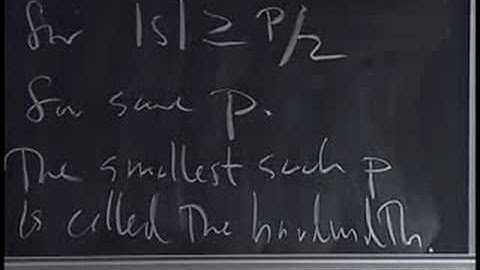 for |s| ≥ p/2
for some p.
The smallest such p
is called the bandwidth.